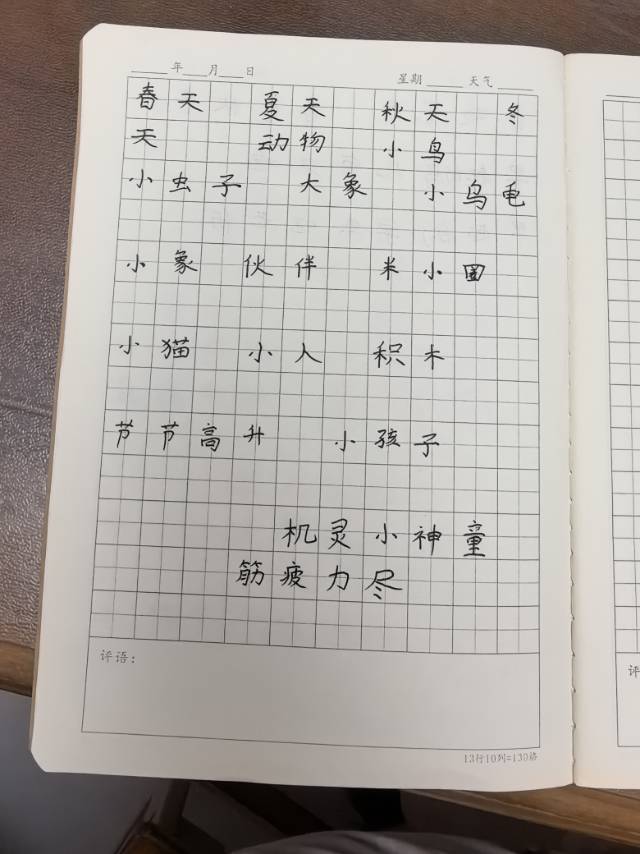 年 月 日 星期 天气
春天 夏天 秋天 冬
天 动物 小鸟
小虫子 大象 小鸟龟
小象 伙伴 米小圈
小猫 小人 积木
节节高升 小孩子
机灵小神童
筋疲力尽
评语：
13行10列=130格
评